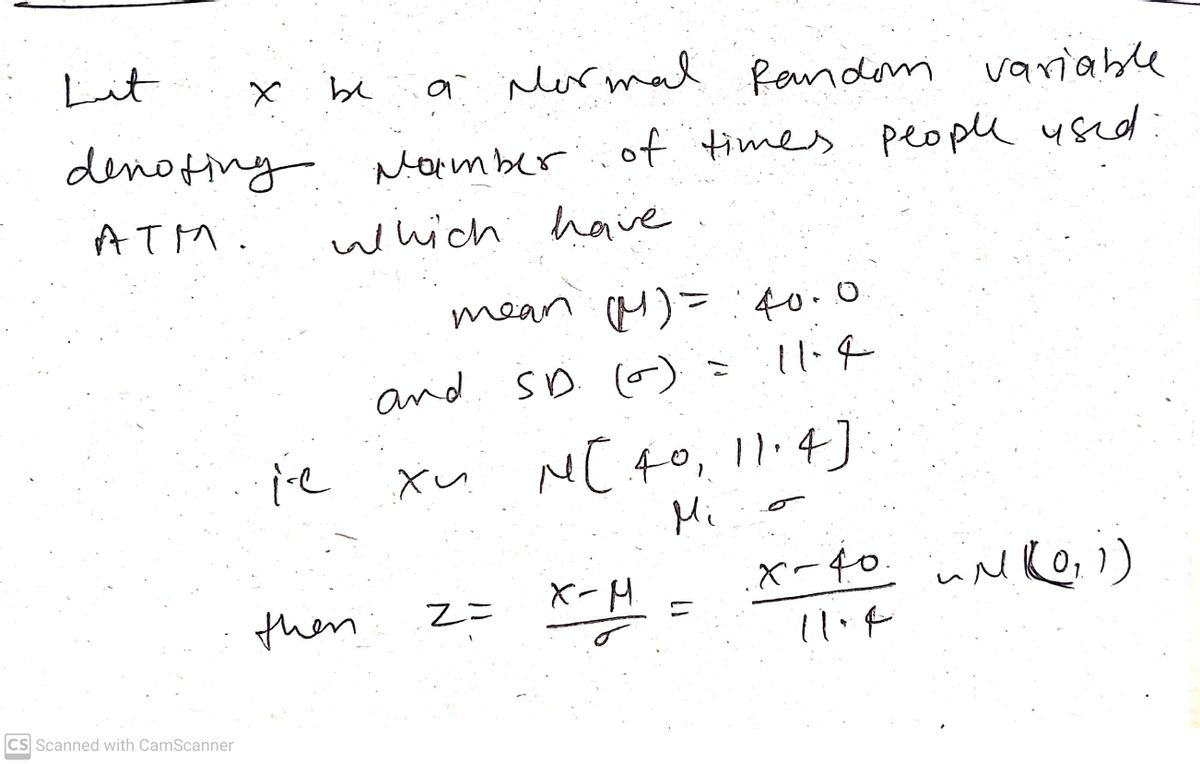 Let x be a Normal Random variable
denoting Number of times people used
ATM. which have
mean (μ) = 40.0
and SD (σ) = 11.4
i.e x ~ N[40, 11.4]
μ, σ
then z = x-μ/σ = x-40/11.4 ~ N(0,1)
CS Scanned with CamScanner